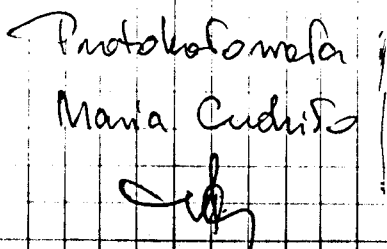 Protokołowała
Maria Cudziło